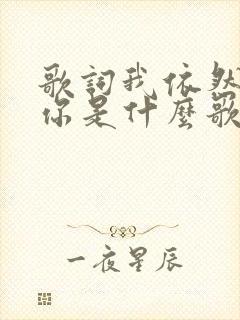 歌詞我依然
你是什麼歌
一夜星辰